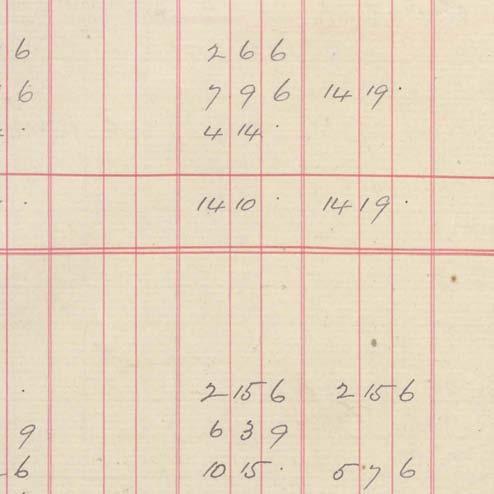 6 2 6 6
6 7 9 6 14 19 ·
· 4 14 ·
· 14 10 · 14 19 ·
· 2 15 6 2 15 6
9 6 3 9
6 10 15 · 5 7 6